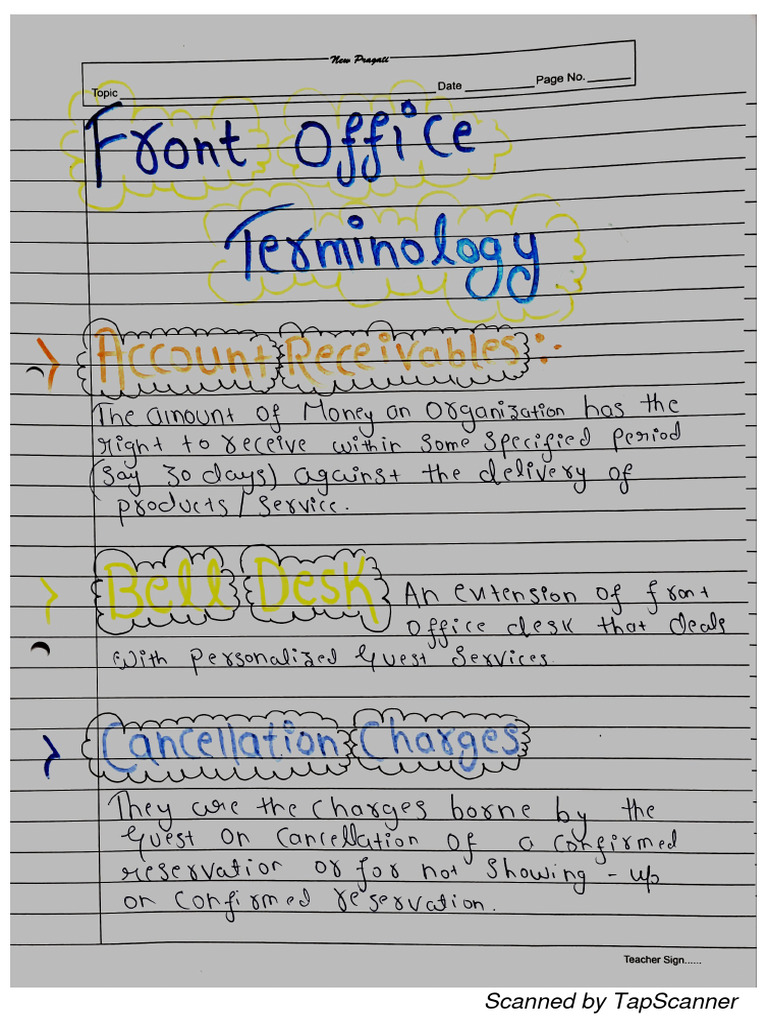 New Pragati
Topic Date Page No.
Front Office
Terminology
Account Receivables :-
The amount of Money an Organization has the
right to receive within some specified period
(say 30 days) against the delivery of
products / service.
Bell Desk An extension of front
office desk that deals
with personalized Guest Services
Cancellation Charges
They are the charges borne by the
Guest on cancellation of a confirmed
reservation or for not showing - up
on confirmed reservation.
Teacher Sign......
Scanned by TapScanner